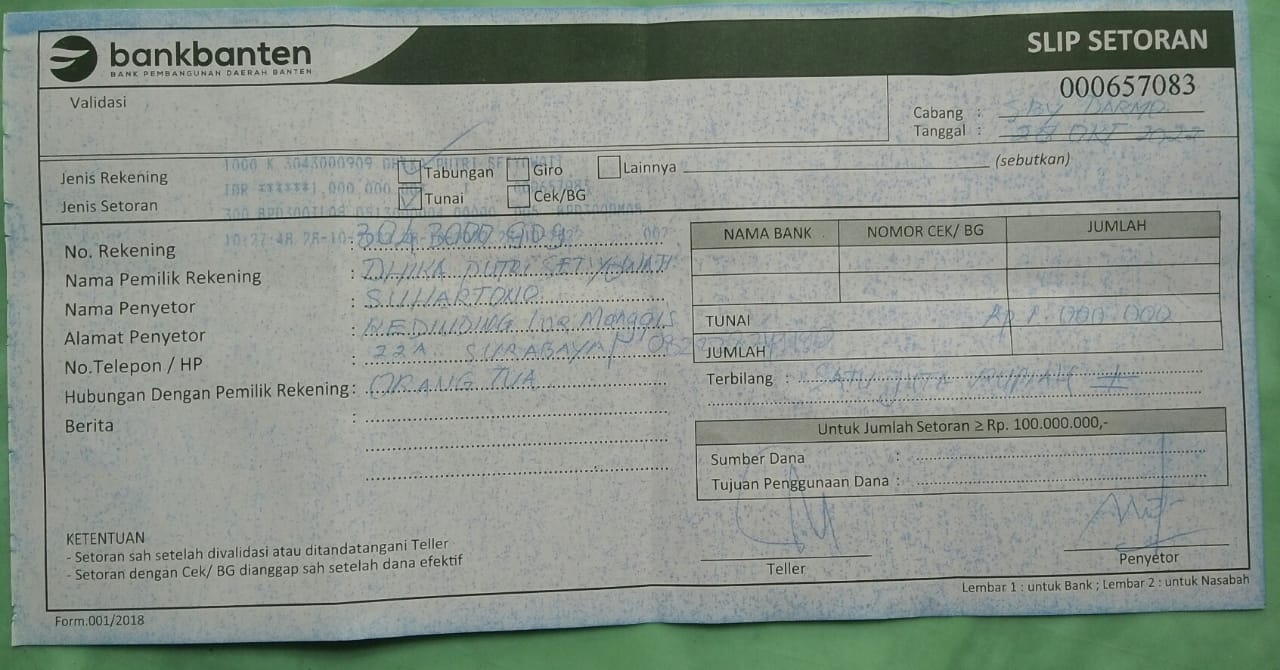 bankbanten
BANK PEMBANGUNAN DAERAH BANTEN
SLIP SETORAN
000657083
Validasi
Cabang : SBY DARMO
Tanggal : 28 OKT 2022
1000 K 3043000909 PUTRI SETYOWATI
IDR ******1,000,000.00
Jenis Rekening Tabungan Giro Lainnya (sebutkan)
Jenis Setoran Tunai Cek/BG
No. Rekening : 3043000909
Nama Pemilik Rekening : DHIKA PUTRI SETYOWATI
Nama Penyetor : SUHARTONO
Alamat Penyetor : KEDINDING Manggis
22A SURABAYA
No.Telepon / HP
Hubungan Dengan Pemilik Rekening: ORANG TUA
Berita :
NAMA BANK NOMOR CEK/ BG JUMLAH
TUNAI Rp 1.000.000
JUMLAH
Terbilang : SATU JUTA RUPIAH #
Untuk Jumlah Setoran ≥ Rp. 100.000.000,-
Sumber Dana :
Tujuan Penggunaan Dana :
KETENTUAN
- Setoran sah setelah divalidasi atau ditandatangani Teller
- Setoran dengan Cek/ BG dianggap sah setelah dana efektif
Teller
Penyetor
Lembar 1 : untuk Bank ; Lembar 2 : untuk Nasabah
Form.001/2018